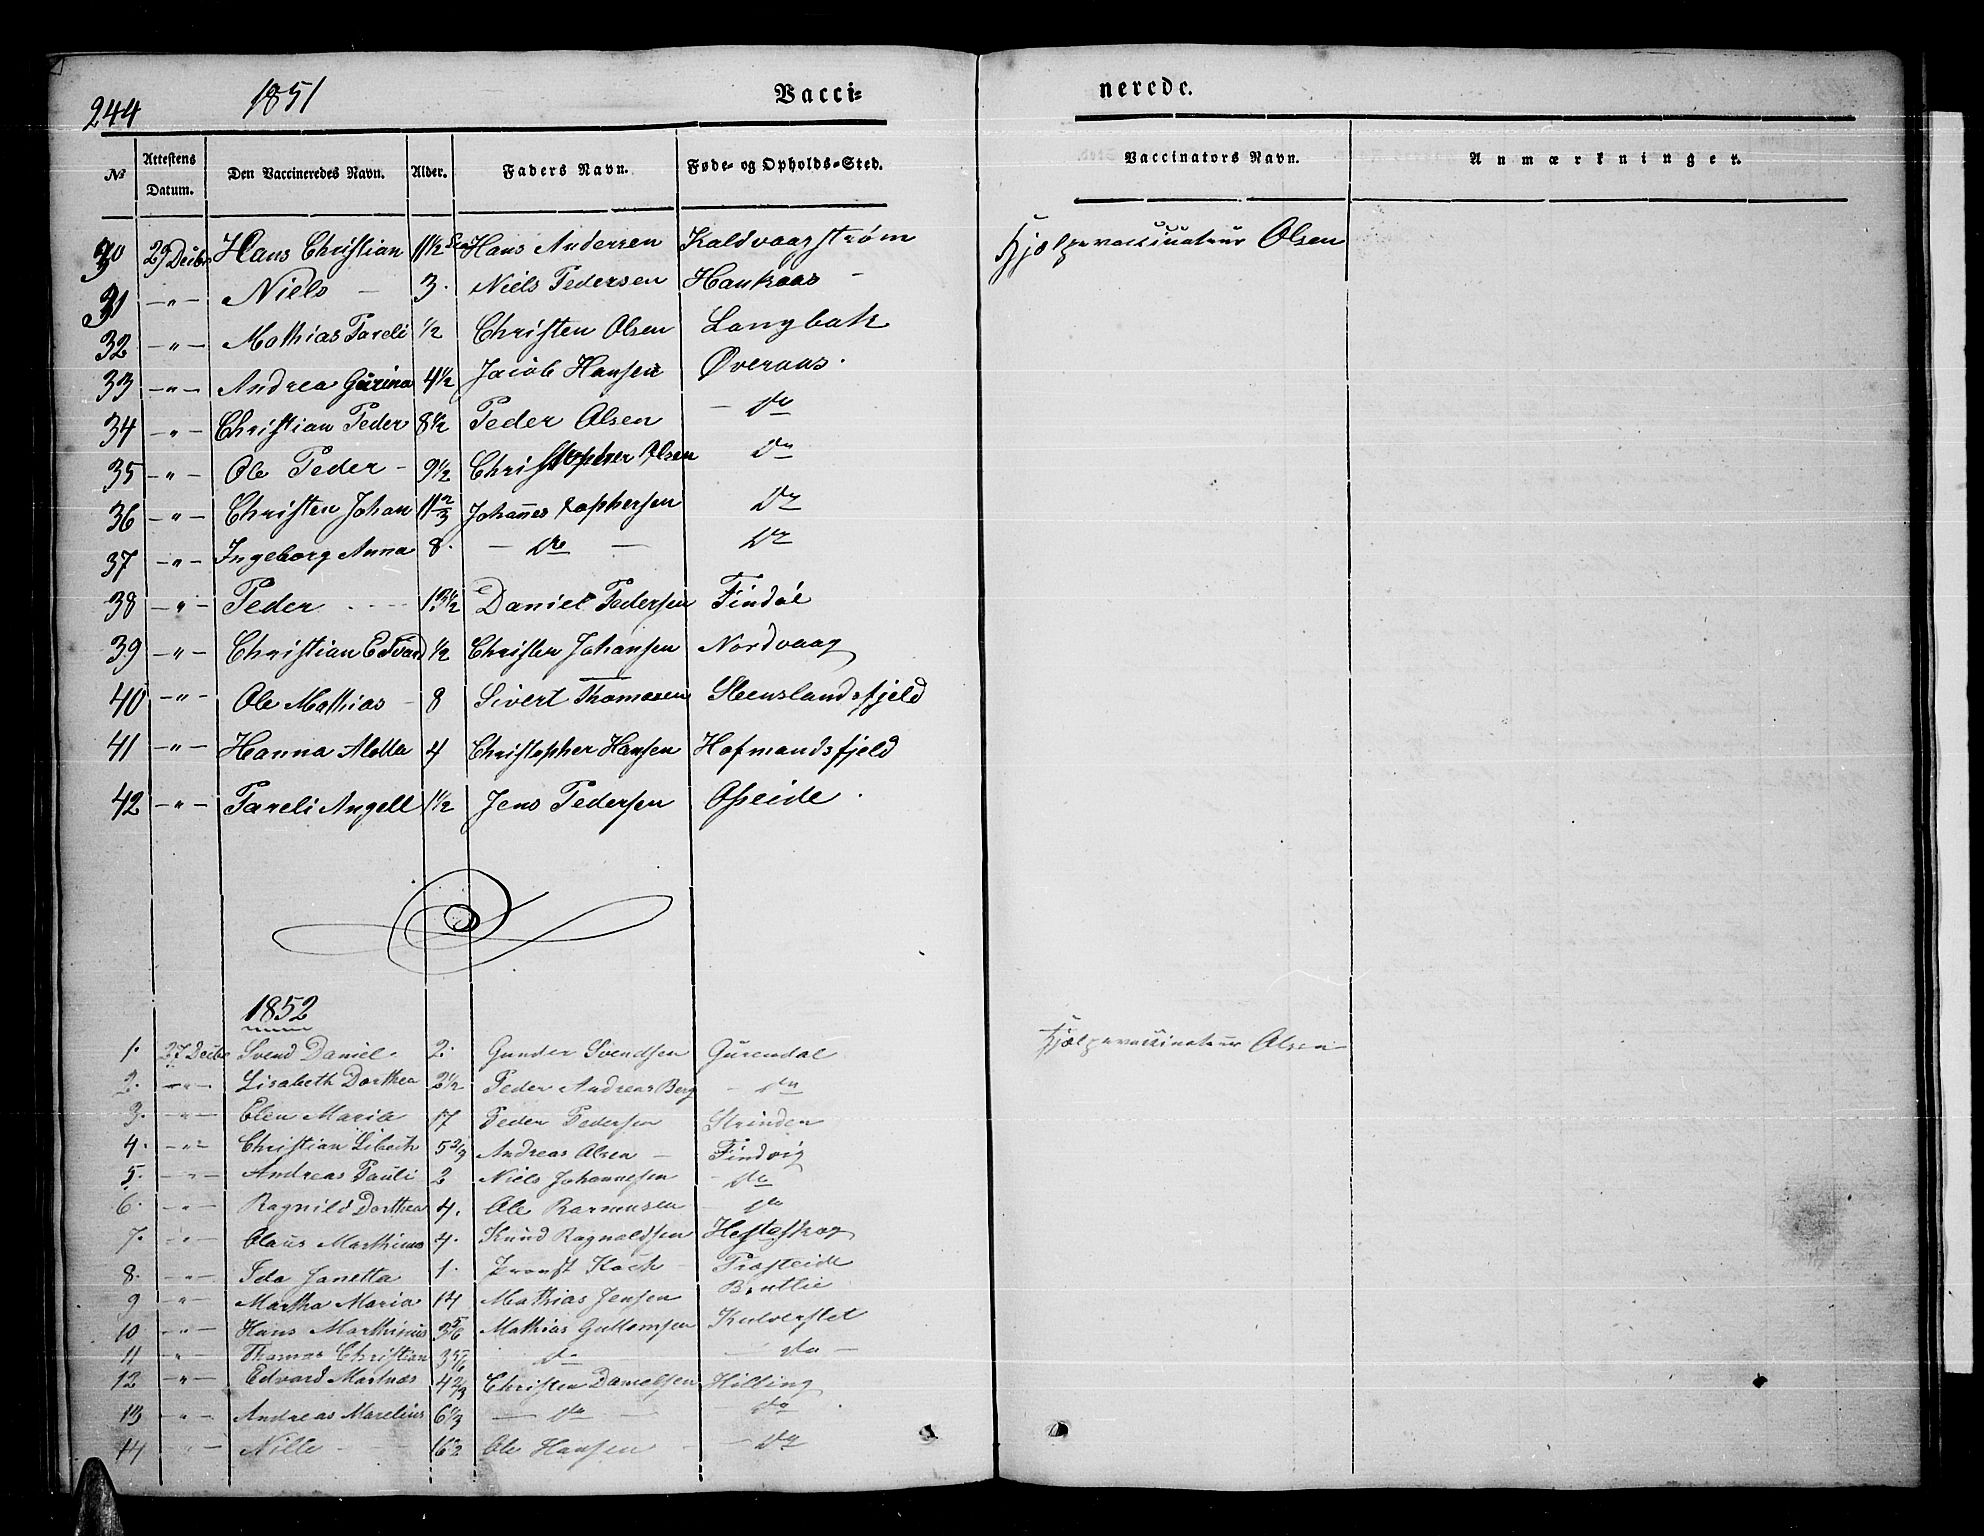 244 1851 Vacci- nerede.
№ Attestens Datum. Den Vaccineredes Navn. Alder. Faders Navn. Føde- og Opholds-Sted. Vaccinators Navn. Anmærkninger.
30 29 Decbr Hans Christian 11 1/2 Hans Andersen Kaldvaagstrøm Hjælpevaccinateur Olsen
31 -"- Niels - 3. Niels Pedersen Hankaas -
32 -"- Mathias Pareli 1/2 Christen Olsen Langbak
33 -"- Andrea Gurina 4 1/2 Jacob Hansen Øveraas.
34 -"- Christian Peder 8 1/2 Peder Olsen - do
35 -"- Ole Peder - 9 1/2 Christopher Olsen do
36 -"- Christen Johan 11 2/3 Johannes Tophersen do
37 -"- Ingeborg Anna 8. - do - do
38 -"- Peder 1/2 Daniel Pedersen Findøl
39 -"- Christian Edvard 1/2 Christen Johansen Nordvaag
40 -"- Ole Mathias - 8 Sivert Thomasen Steenslandsfjeld
41 -"- Hanna Aletta 4 Christopher Hansen Hofmandsfjeld
42 -"- Pareli Angell 1 1/2 Jens Pedersen Opeide.
1852
1. 27 Decbr Svend Daniel. 2. Gunder Svendsen Gurendal Hjælpevaccinateur Olsen
2. -"- Lisabeth Dorthea 2 1/2 Peder Andreas Berg - do
3. -"- Elen Maria 17 Peder Pedersen Strinden
4. -"- Christian Libech 5 2/3 Andreas Olsen - Findvig
5. -"- Andreas Pauli 2 Niels Johannesen - do
6. -"- Ragnild Dorthea 4. Ole Rasmusen - do
7. -"- Olaus Marthinus 4. Knud Ragnaldsen Hesteskog
8. -"- Ida Janetta 1. Provst Koch - Præsteide
9 -"- Martha Maria 14 Mathias Jensen Bentlie
10 -"- Hans Marthinus 3 5/6 Mathias Guttomsen Kulverstet
11 -"- Thomas Christian 3 5/6 do - do -
12 -"- Edvard Martnæs 4 2/3 Christen Danielsen Hilling
13 -"- Andreas Marelius 6 1/3 - do - do
14 -"- Nille - 16 1/2 Ole Hansen - - do